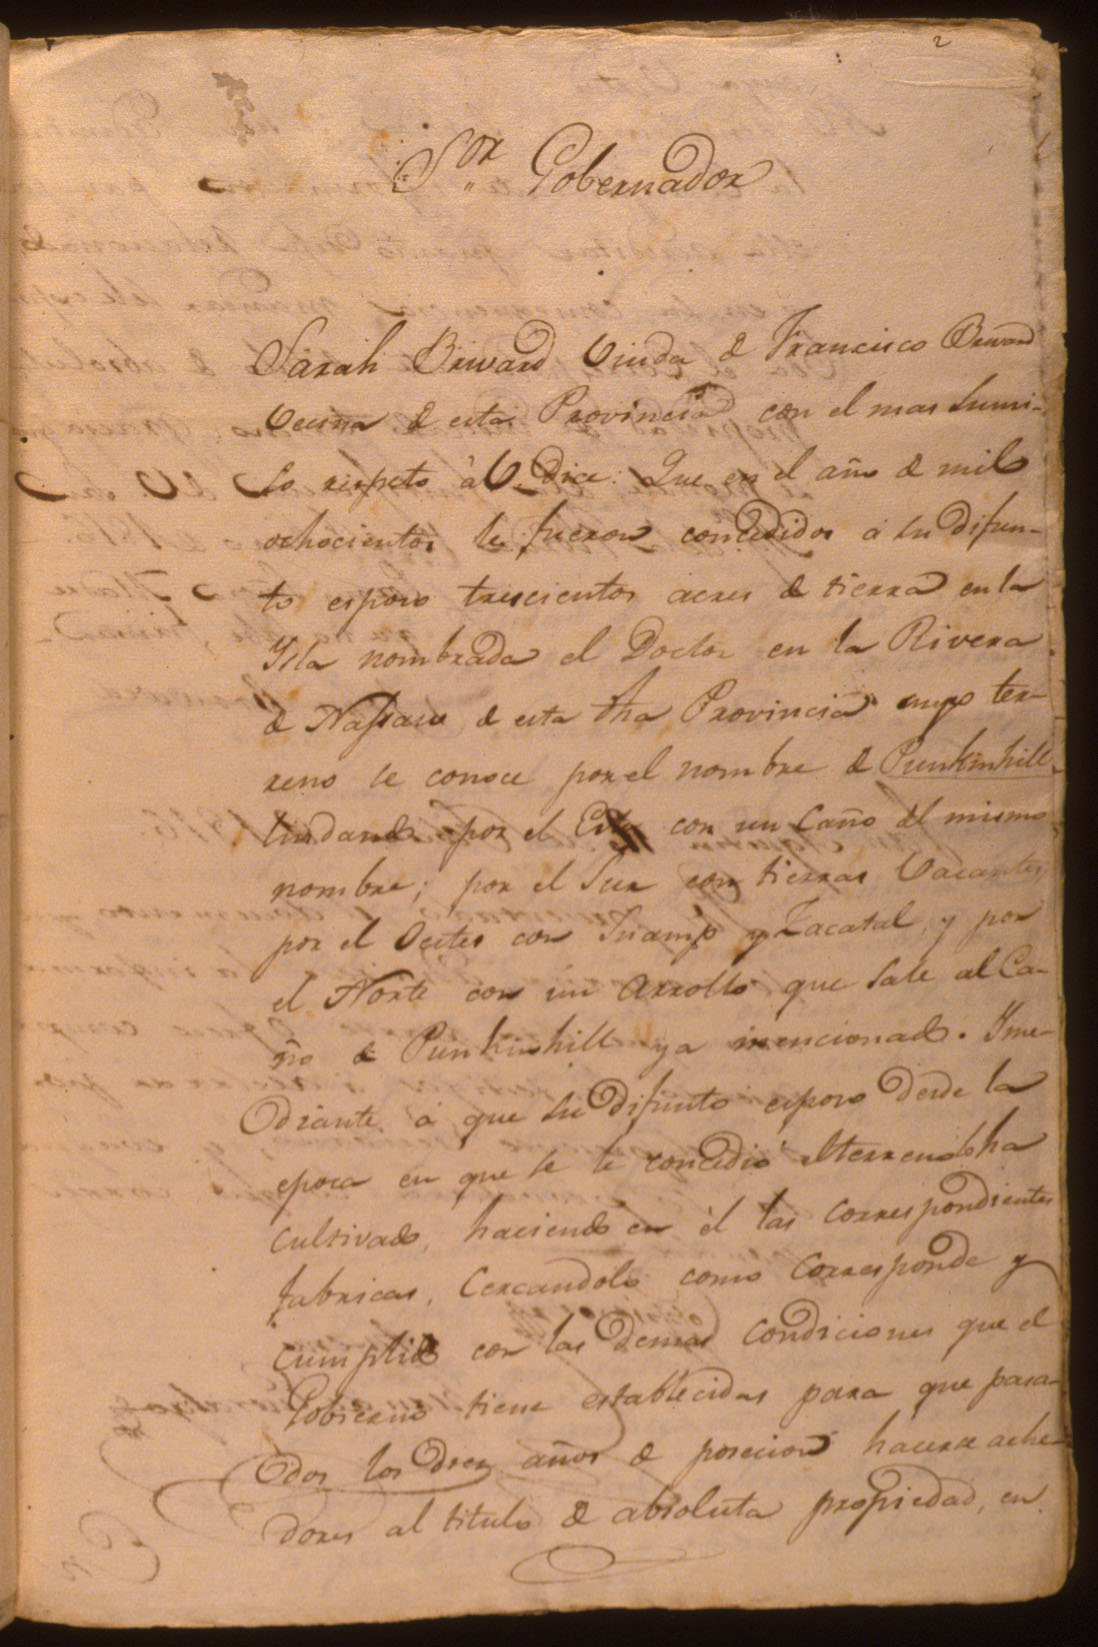 2
Sor Gobernador
Sarah Brward Viuda de Francisco Brward
Vecina de esta Provincia con el mas sumi-
so respeto à V. Dice: Que en el año de mil
ochocientos le fueron concedidos á su difun-
to esposo trescientos acres de tierra en la
Ysla nombrada el Doctor en la Rivera
de Nassau de esta dha Provincia cuyo ter-
reno se conoce por el nombre de Punkinhill
lindando por el Este con un Caño del mismo
nombre; por el Sur con tierras Vacantes,
por el Oeste con Suampo y Zacatal, y por
el Norte con un Arrollo que sale al Ca-
ño de Punkinhill ya mencionado. Yme-
diante á que su difunto esposo desde la
epoca en que se le concedió el terreno lo ha
cultivado, haciendo en él las correspondientes
fabricas, Cercandolo como corresponde y
cumplido con las demas condiciones que el
Gobierno tiene establecidas para que pasa-
dos los diez años de posecion hacerse acree-
dores al titulo de absoluta propiedad, en